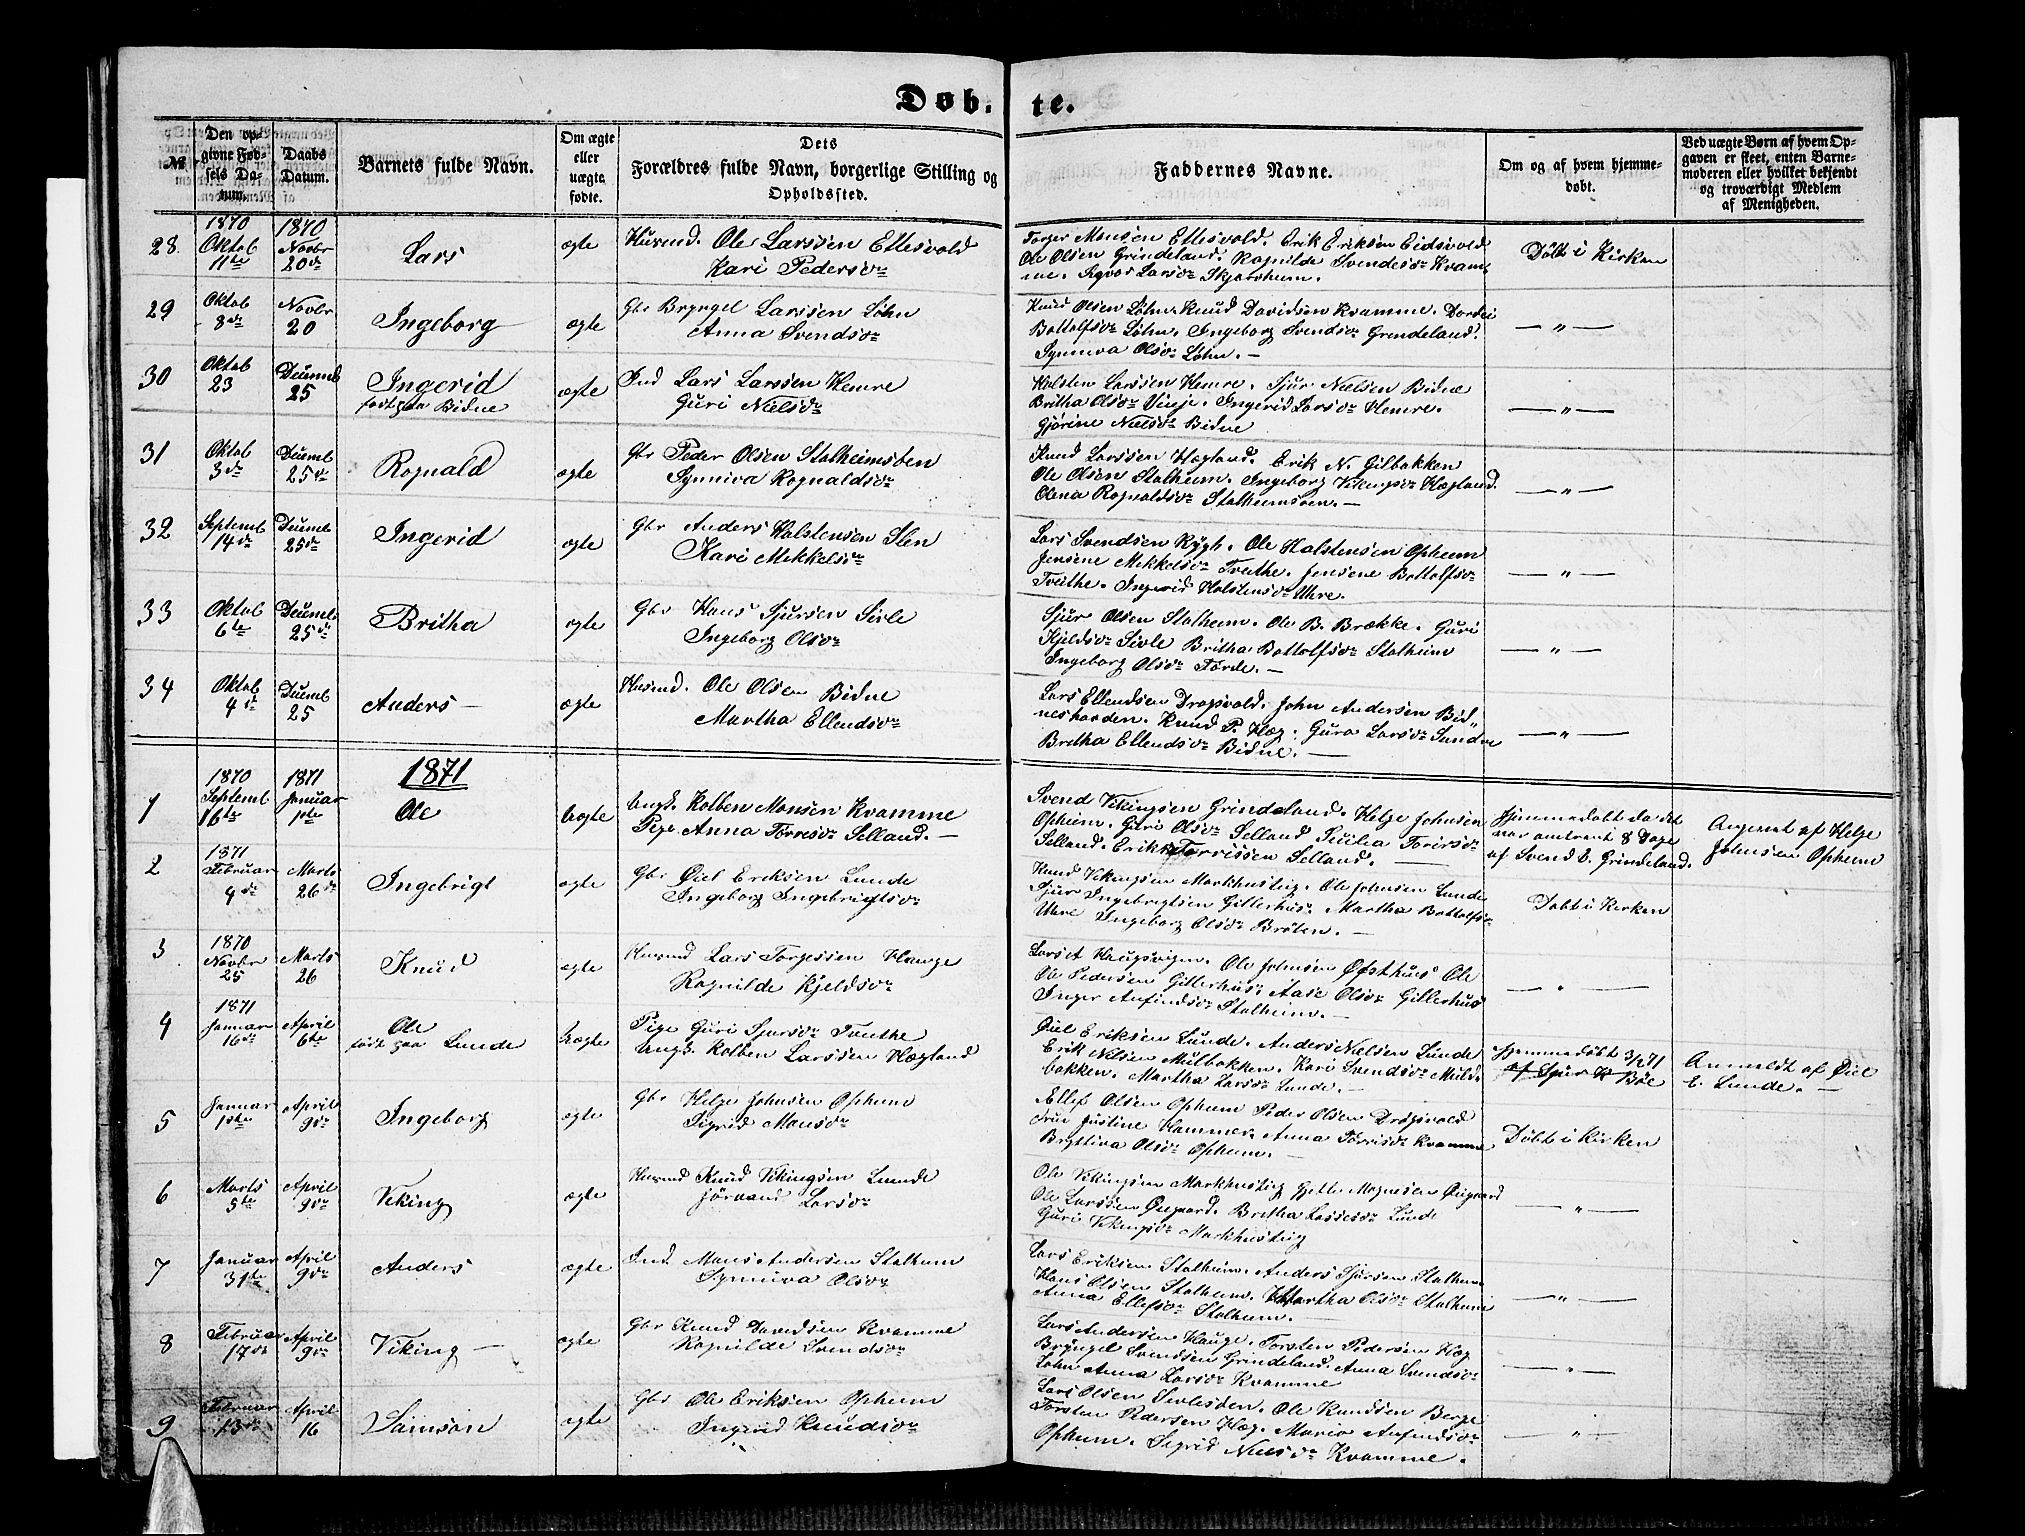 Døb-
te.
№
Den op-
givne Fød-
sels Da-
tum.
Daabs
Datum.
Barnets fulde Navn.
Om ægte
eller
uægte
fødte.
Dets
Forældres fulde Navn, borgerlige Stilling og
Opholdssted.
Faddernes Navne.
Om og af hvem hjemme-
døbt.
Ved uægte Børn af hvem Op-
gaven er skeet, enten Barne-
moderen eller hvilket bekjendt
og troværdigt Medlem
af Menigheden.
28
1870
Oktob
11te
1870
Novbr
20de
Lars
ægte
Husmd. Ole Larssen Ellesvold
Kari Pedersdr
Torger Monsen Ellesvold. Erik Eriksen Eidsvold
Ole Olsen Grindeland. Ragnilde Svendsdr Kvam-
me. Larsdr Skjærsheim.
Døbt i Kirken
29
Oktob
8de
Novbr
20
Ingeborg
ægte
Gbr Bryngel Larssen Løhn
Anna Svendsdr
Knud Olsen Løhn. Knud Davidsen Kvamme. Dordei
Bottolfsdr Løhn. Ingeborg Svendsdr Grindeland.
Synniva Olsdr Løhn. —
— " —
30
Oktob
23
Decemb
25
Ingerid
født paa Bidne
ægte
Ind Lars Larssen Hemre
Guri Nielsdr
Holsten Larssen Hemre. Sjur Nielsen Bidne
Britha Olsdr Vinje. Ingerid Larsdr Hemre.
Gjørine Nielsdr Bidne
— " —
31
Oktob
3de
Decemb
25de
Rognald
ægte
Gbr Peder Olsen Stalheimsøen
Synniva Rognaldsdr
Knud Larssen Hægland. Erik N. Gilbakken
Ole Olsen Stalheim. Ingeborg Vikingsdr Hægland
Olena Rognaldsdr Stalheimsøen. —
— " —
32
Septemb
14de
Decemb
25de
Ingerid
ægte
Gbr Anders Holstensen Slen
Kari Mikkelsdr
Lars Svendsen Rygh. Ole Holstensen Opheim
Jensine Mikkelsdr Tveithe. Jensene Bottolfsdr
Tveithe. Ingerid Holstensdr Uhre.
— " —
33
Oktob
6te
Decemb
25de
Britha
ægte
Gbr Hans Sjursen Sivle
Ingeborg Olsdr
Sjur Olsen Stalheim. Ole B. Brække. Guri
Kjeldsdr Sivle Britha Bottolfsdr Stalheim
Ingeborg Olsdr Førde. —
— " —
34
Oktob
4de
Decemb
25
Anders —
ægte
Husmd. Ole Olsen Bidne
Martha Ellendsdr
Lars Ellendsen Dragsvold. John Andersen Bid-
neshorden. Knud P. Hæg. Guro Larsdr Sundve
Britha Ellendsdr Bidne. —
— " —
1871
1
1870
Septemb
16te
1871
Januar
1ste
Ole
Uægte
Ungk. Kolben Monsen Kvamme
Pige Anna Torresdr Selland. —
Svend Vikingsen Grindeland. Helge Johnsen
Opheim. Guri Olsdr Selland Sicilia Torisdr
Selland. Erik Torrissen Selland. —
Hjemmedøbt da det
var omtrent 8 Dage
af Svend V. Grindeland.
Angivet af Helge
Johnsen Opheim
2
1871
Februar
4de
Marts
26de
Ingebrigt
ægte
Gbr Øiel Eriksen Lunde
Ingeborg Ingebrigtsdr
Knud Vikingsen Markhusteig. Ole Johnsen Lunde
Sjur Ingebrigtsen Gillerhus. Martha Bottolfsdr
Uhre Ingeborg Olsdr Bråten. —
Døbt i Kirken
3
1870
Novbr
25
Marts
26
Knud
ægte
Husmd Lars Torgessen Hauge
Ragnilde Kjeldsdr
Lars A Haugsvigen. Ole Johnsen Øfsthus Ole
Ole Pedersen Gillerhus. Aase Olsdr Gillerhus
Inger Anfindsdr Stalheim. —
— " —
4
1871
Januar
16de
April
6te
Ole
født paa Lunde
Uægte
Pige Guri Sjursdr Tveithe
Ungk. Kolben Larssen Hægland
Øiel Eriksen Lunde. Anders Nielsen Lunde
Erik Nilsen Mülbakken. Kari Svendsdr Müld-
bakken. Martha Larsdr Lunde. —
Hjemmedøbt 3/2 71
af Sjur K Bøe
Anmeldt af Øiel
E. Lunde. —
5
Januar
1ste
April
9de
Ingeborg
ægte
Gbr Helge Johnsen Opheim
Sigrid Monsdr
Ellef Olsen Opheim Peder Olsen Dragsvold
Fru Justine Hammer. Anna Torrisdr Kvamme
Bryttiva Olsdr Opheim. —
Døbt i Kirken
6
Marts
5te
April
9de
Viking
ægte
Husmd Knud Vikingsen Lunde
Jørand Larsdr
Ole Vikingsen Markhusteig Gjetle Magnesen Øiegaard
Ole Larssen Øiegaard. Britha Lassesdr Lunde
Guri Vikingsdr Markhusteig
— " —
7
Januar
31te
April
9de
Anders
ægte
Ind. Mons Andersen Stalheim
Synniva Olsdr
Lars Eriksen Stalheim. Anders Sjursen Stalheim
Hans Olsen Stalheim. Martha Olsdr Stalheim
Anna Ellefsdr Stalheim. —
— " —
8
Februar
17de
April
9de
Viking —
ægte
Gbr Knud Davidsen Kvamme
Ragnilde Svendsdr
Lars Andersen Hauge. Torsten Pedersen Hæg
Bryngel Svendsen Grindeland. Anna Svendsdr
Løhn Anna Larsdr Kvamme
— " —
9
Februar
13de
April
16
Samson
ægte
Gbr Ole Eriksen Opheim
Ingerid Knudsdr
Lars Olsen Sivlesøen. Ole Knudsen Berge
Torsten Pedersen Hæg. Maria Anfindsdr
Opheim. Sigrid Nielsdr Kvamme.
— " —